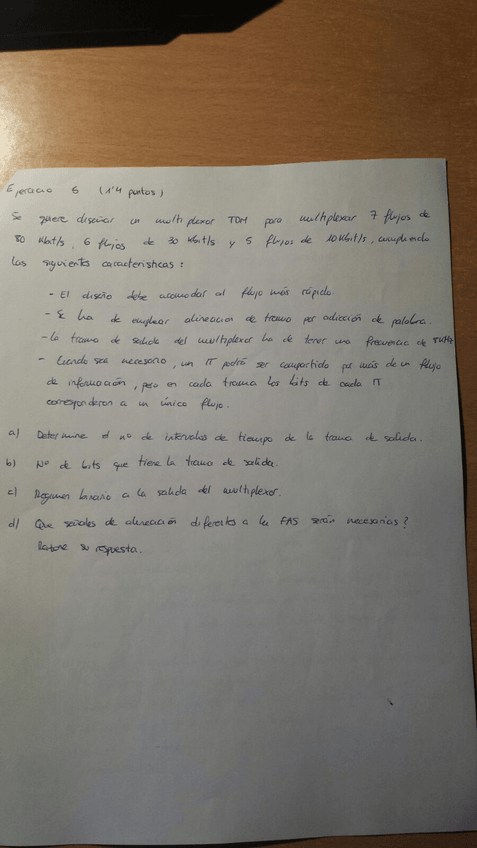 Ejercicio 6 (1'4 puntos)
Se quiere diseñar un multiplexor TDM para multiplexar 7 flujos de
80 kbit/s, 6 flujos de 30 kbit/s y 5 flujos de 10 kbit/s, cumpliendo
las siguientes características:
- El diseño debe acomodar al flujo más rápido.
- Se ha de emplear alineación de trama por adicción de palabra.
- La trama de salida del multiplexor ha de tener una frecuencia de
- Cuando sea necesario, un IT podrá ser compartido por más de un flujo
de información, pero en cada trama los bits de cada IT
corresponderan a un único flujo.
a) Determine el nº de intervalos de tiempo de la trama de salida.
b) Nº de bits que tiene la trama de salida.
c) Regimen binario a la salida del multiplexor.
d) Que señales de alineación diferentes a la FAS serán necesarias?
Razone su respuesta.